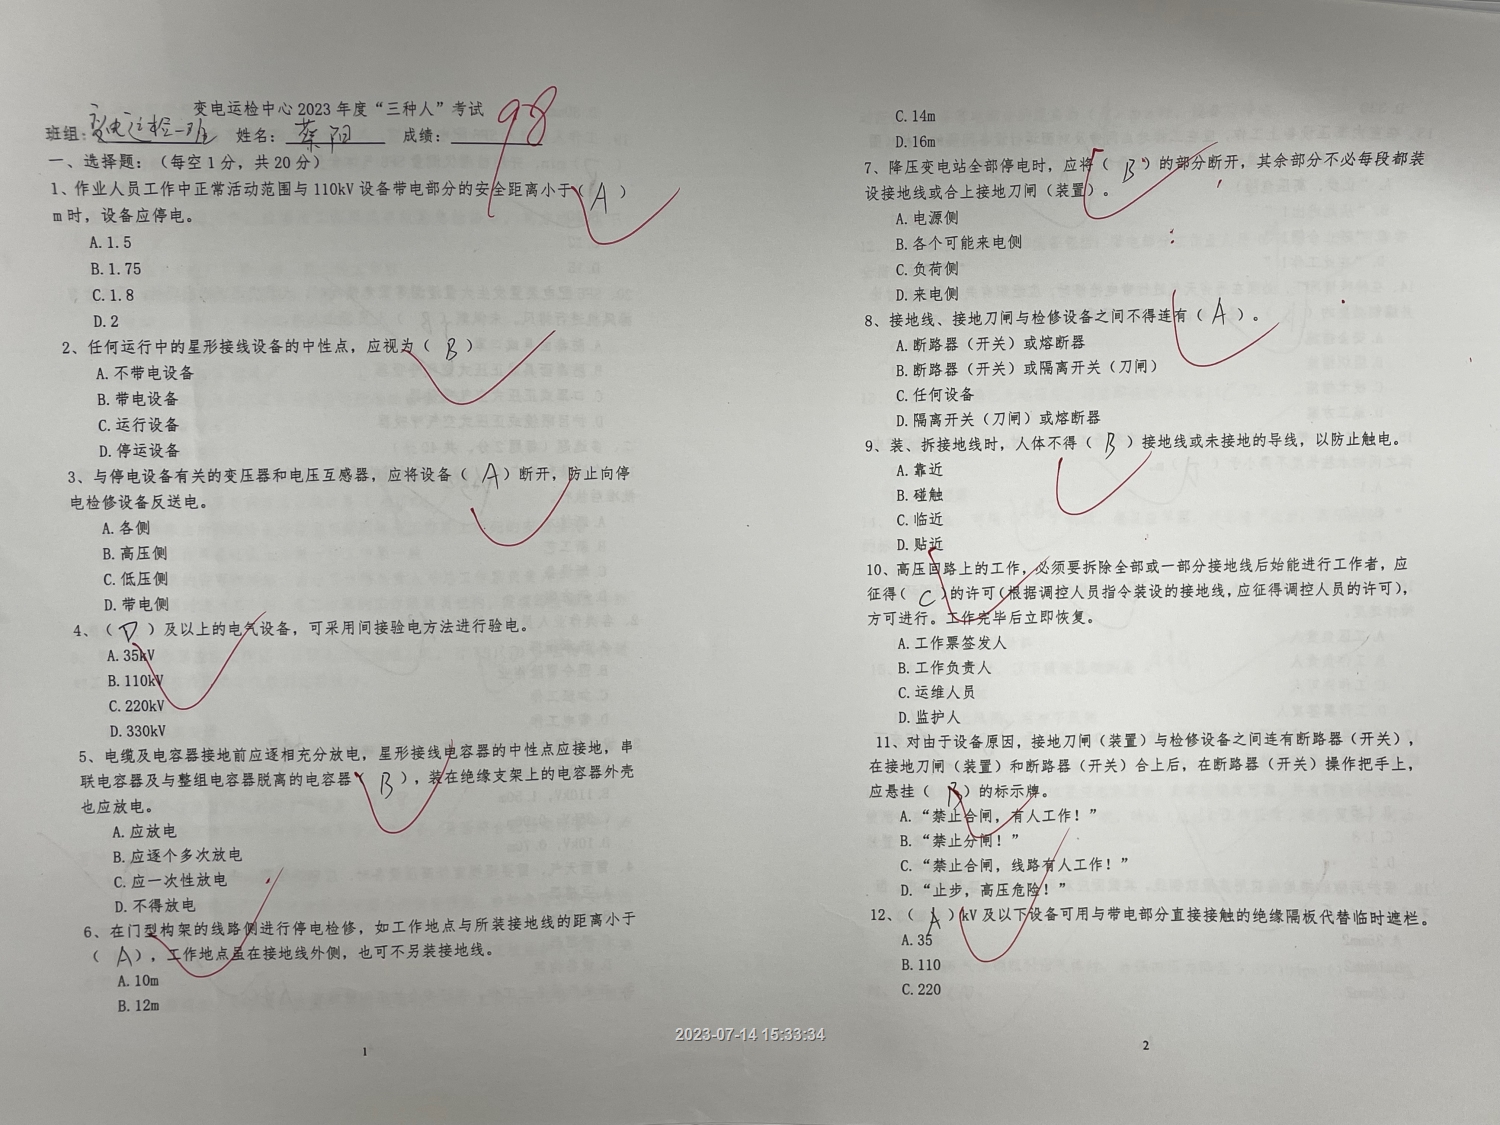 变电运检中心2023年度“三种人”考试
班组：变电运检一班 姓名： 成绩：98
一、选择题：（每空1分，共20分）
1、作业人员工作中正常活动范围与110kV设备带电部分的安全距离小于（ A ）
m时，设备应停电。
A.1.5
B.1.75
C.1.8
D.2
2、任何运行中的星形接线设备的中性点，应视为（ B ）
A.不带电设备
B.带电设备
C.运行设备
D.停运设备
3、与停电设备有关的变压器和电压互感器，应将设备（ A ）断开，防止向停
电检修设备反送电。
A.各侧
B.高压侧
C.低压侧
D.带电侧
4、（ D ）及以上的电气设备，可采用间接验电方法进行验电。
A.35kV
B.110kV
C.220kV
D.330kV
5、电缆及电容器接地前应逐相充分放电，星形接线电容器的中性点应接地，串
联电容器及与整组电容器脱离的电容器（ B ），装在绝缘支架上的电容器外壳
也应放电。
A.应放电
B.应逐个多次放电
C.应一次性放电
D.不得放电
6、在门型构架的线路侧进行停电检修，如工作地点与所装接地线的距离小于
（ A ），工作地点虽在接地线外侧，也可不另装接地线。
A.10m
B.12m
1
C.14m
D.16m
7、降压变电站全部停电时，应将（ B ）的部分断开，其余部分不必每段都装
设接地线或合上接地刀闸（装置）。
A.电源侧
B.各个可能来电侧
C.负荷侧
D.来电侧
8、接地线、接地刀闸与检修设备之间不得连有（ A ）。
A.断路器（开关）或熔断器
B.断路器（开关）或隔离开关（刀闸）
C.任何设备
D.隔离开关（刀闸）或熔断器
9、装、拆接地线时，人体不得（ B ）接地线或未接地的导线，以防止触电。
A.靠近
B.碰触
C.临近
D.贴近
10、高压回路上的工作，必须要拆除全部或一部分接地线后始能进行工作者，应
征得（ C ）的许可（根据调控人员指令装设的接地线，应征得调控人员的许可），
方可进行。工作完毕后立即恢复。
A.工作票签发人
B.工作负责人
C.运维人员
D.监护人
11、对由于设备原因，接地刀闸（装置）与检修设备之间连有断路器（开关），
在接地刀闸（装置）和断路器（开关）合上后，在断路器（开关）操作把手上，
应悬挂（ B ）的标示牌。
A.“禁止合闸，有人工作！”
B.“禁止分闸！”
C.“禁止合闸，线路有人工作！”
D.“止步，高压危险！”
12、（ A ）kV及以下设备可用与带电部分直接接触的绝缘隔板代替临时遮栏。
A.35
B.110
C.220
2
2023-07-14 15:33:34